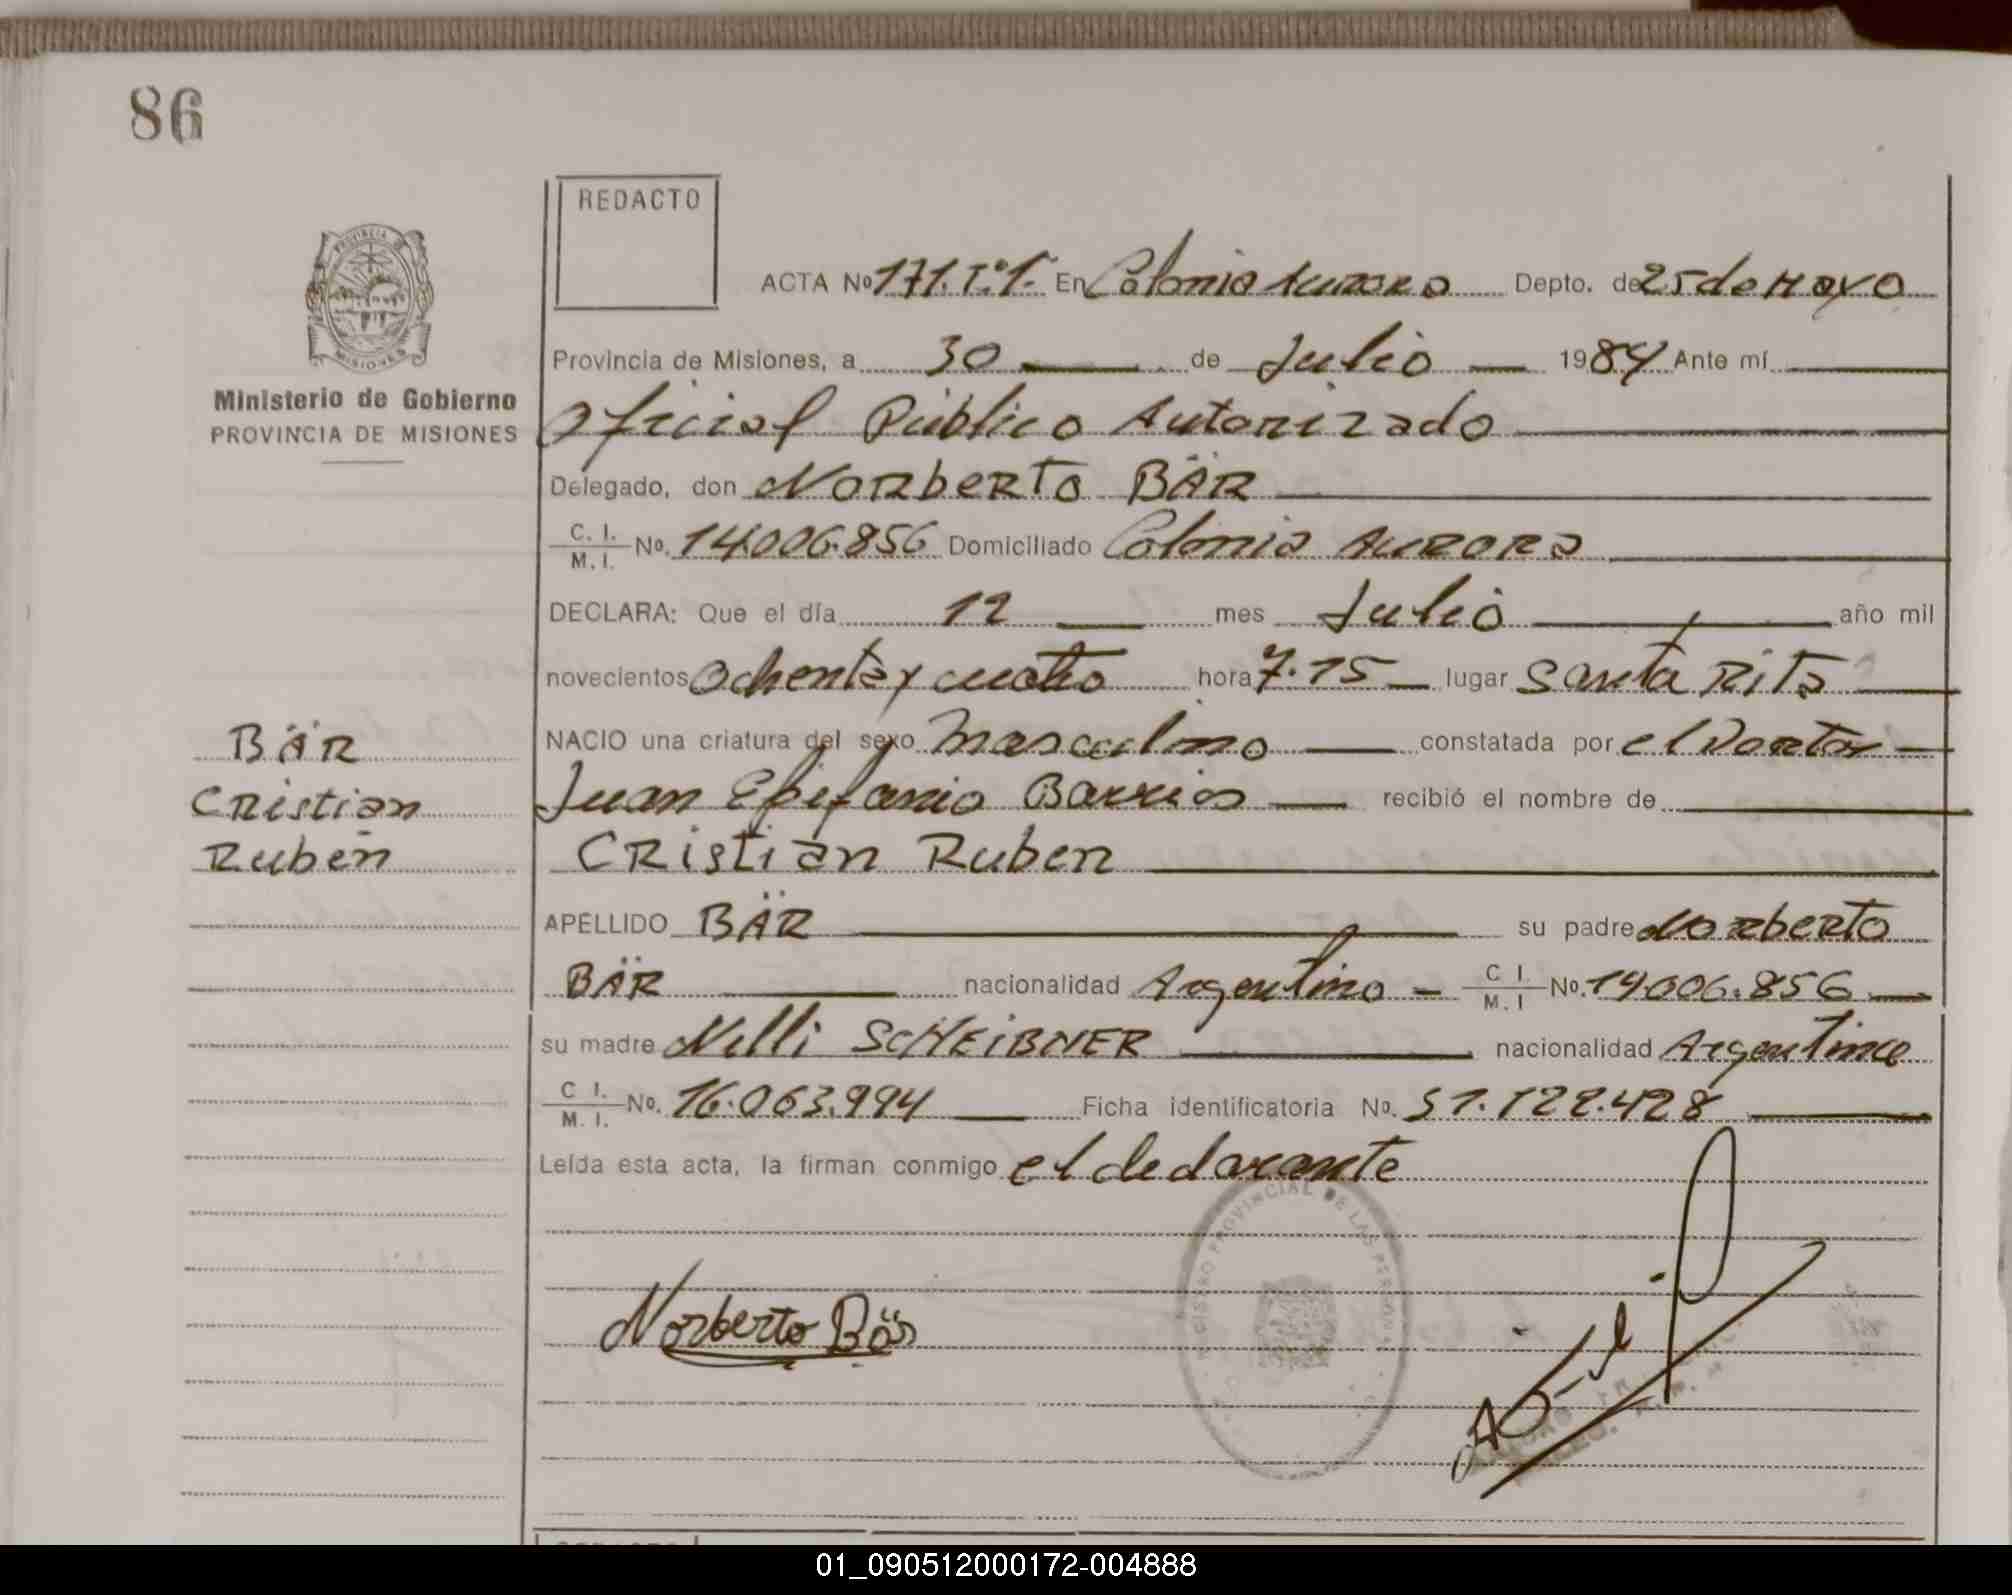 86
REDACTO
PROVINCIA DE
MISIONES
Ministerio de Gobierno
PROVINCIA DE MISIONES
ACTA Nº 171.Tº1º. En Colonia Aurora Depto. de 25 de Mayo
Provincia de Misiones, a 30 de Julio 1984 Ante mí
Oficial Público Autorizado
Delegado, don Norberto BÄR
C. I. M. I. No. 14.006.856 Domiciliado Colonia Aurora
DECLARA: Que el día 12 mes Julio año mil
novecientos ochenta y cuatro hora 7.15 lugar Santa Rita
NACIO una criatura del sexo Masculino constatada por el Doctor
Juan Epifanio Barrios recibió el nombre de
Cristian Ruben
APELLIDO BÄR su padre Norberto
BÄR nacionalidad Argentino - C I. M. I No. 14.006.856
su madre Nelli SCHEIBNER nacionalidad Argentina
C I. M. I. No. 16.063.994 Ficha identificatoria No. 51.122.428
Leída esta acta, la firman conmigo el declarante
BÄR
Cristian
Ruben
REGISTRO PROVINCIAL DE LAS PERSONAS
Norberto Bär
01_090512000172-004888